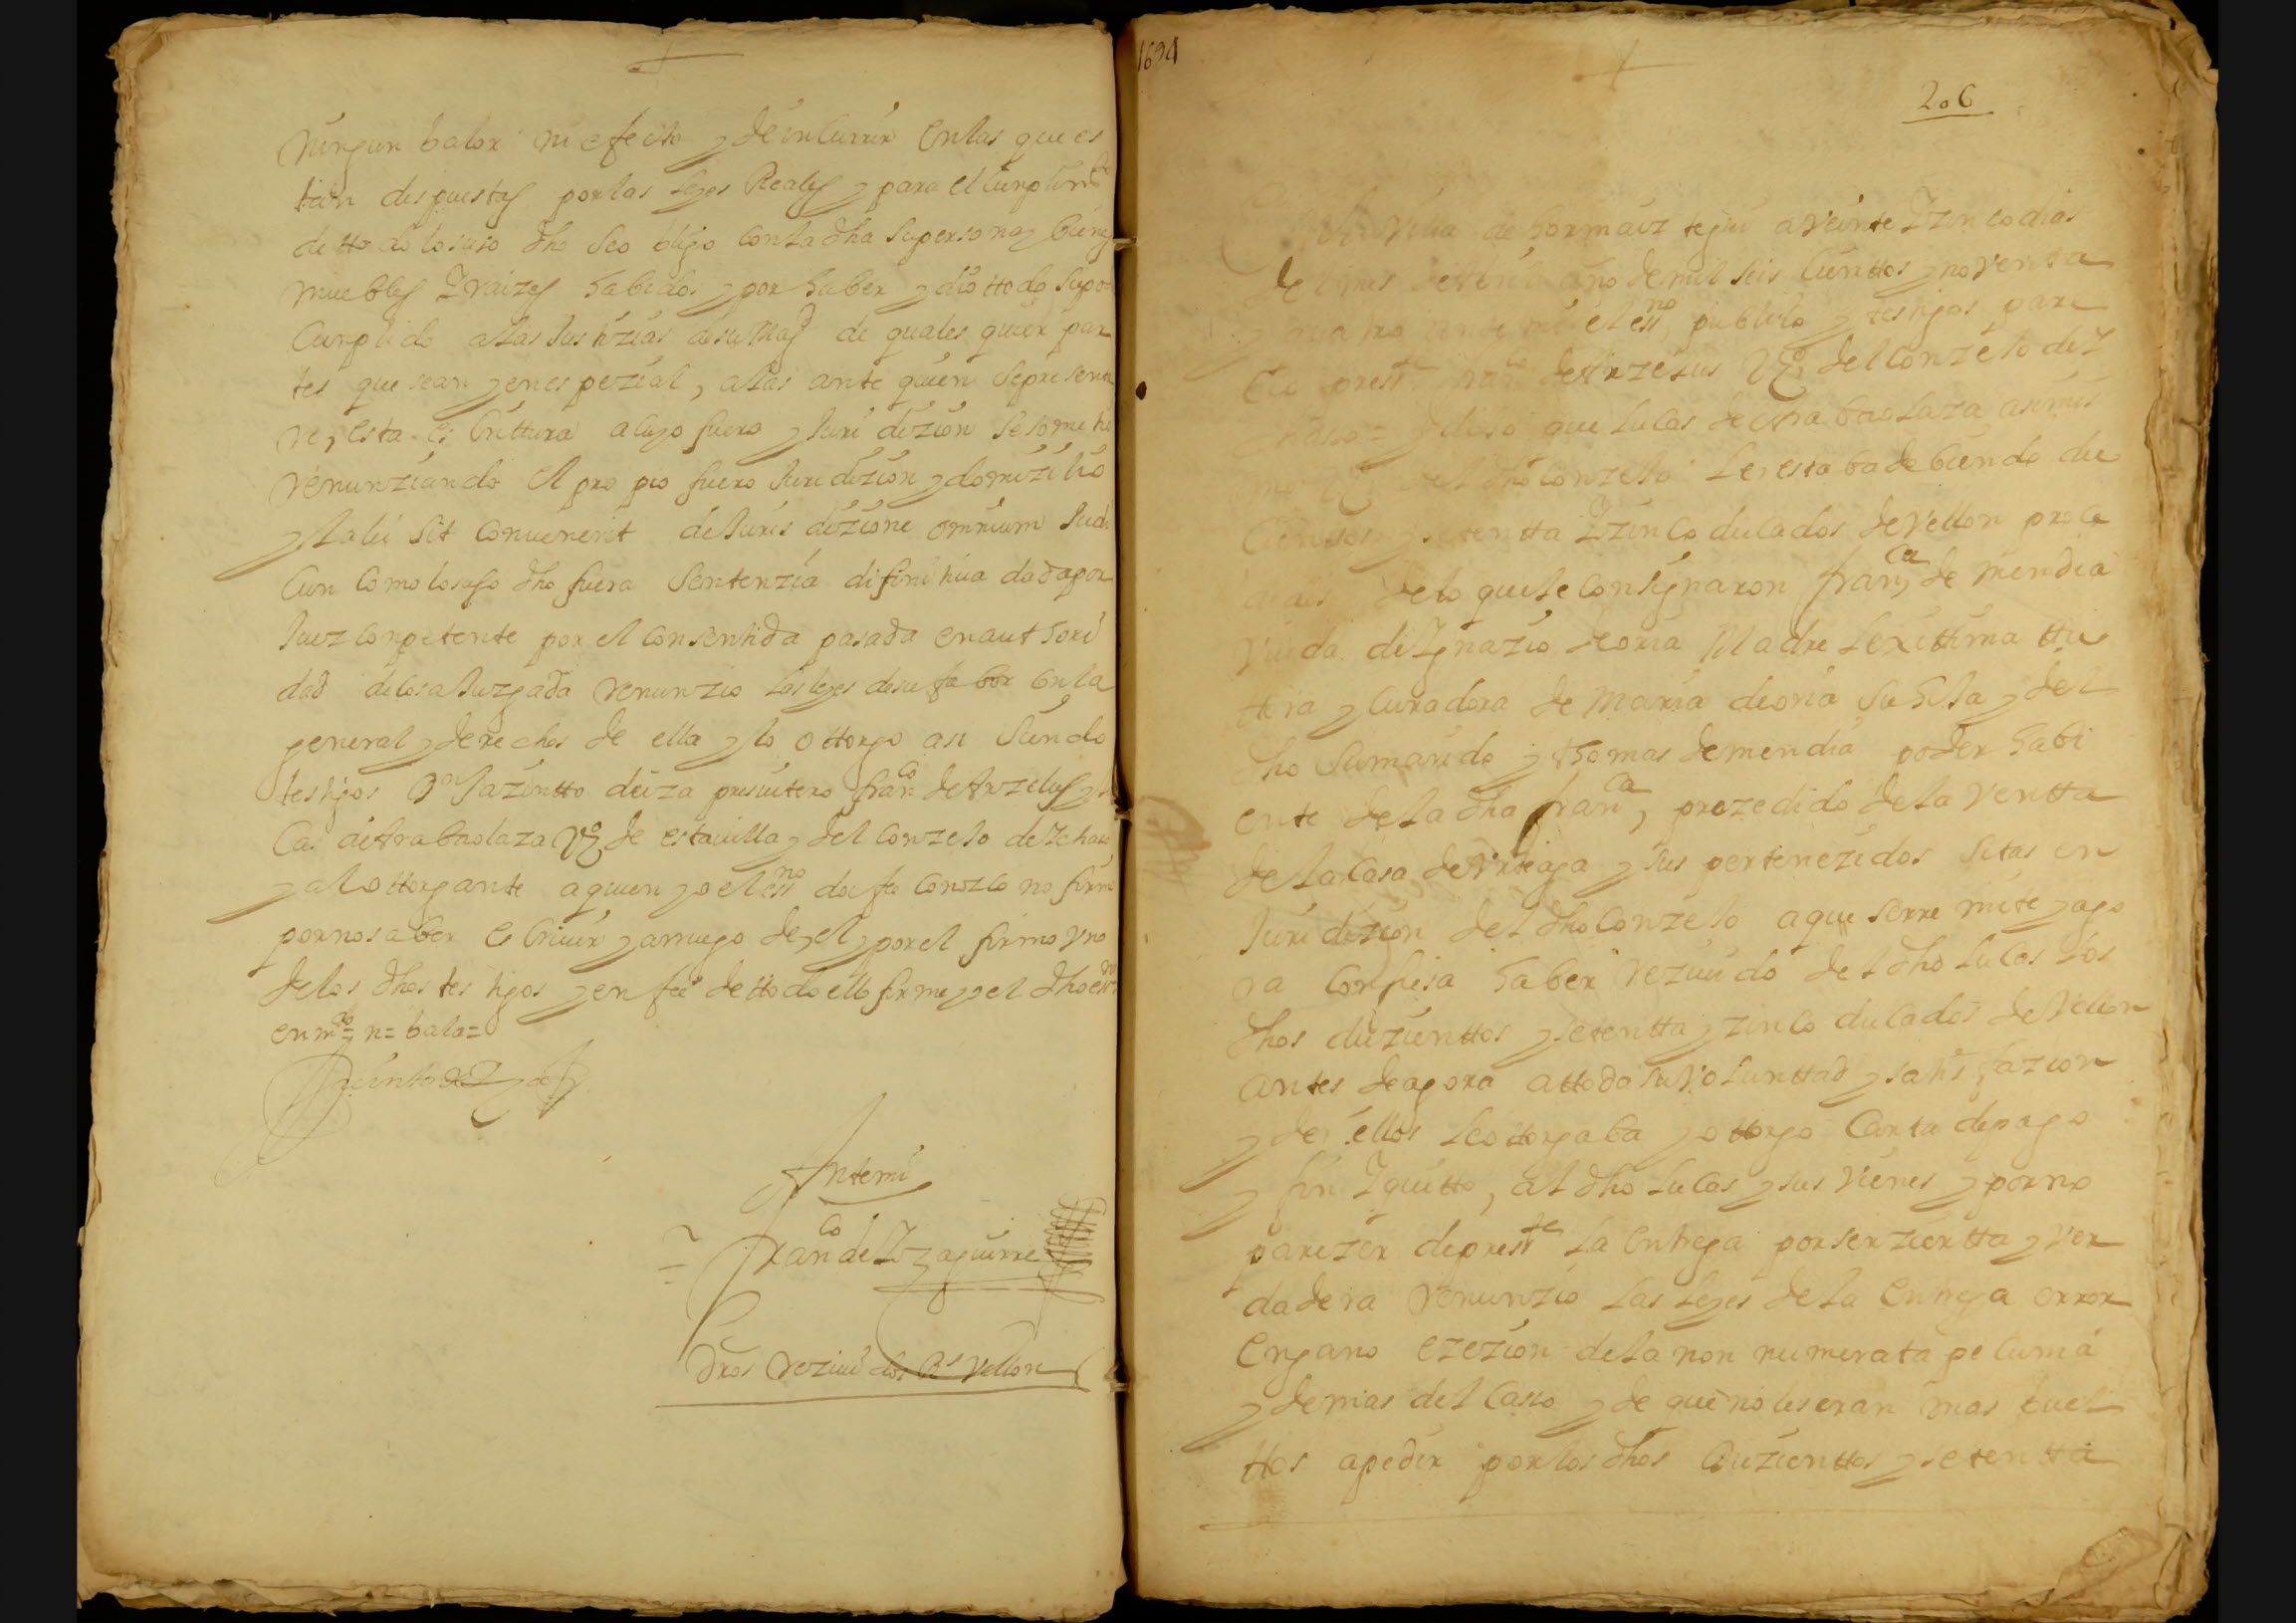 ningun balor ni efecto y de incurrir en las que es
tan dispuestas por las leyes Reales y para el cunplimto
de ttodo lo suso dho se obligo con la dha su persona y bienes
muebles y raizes habidos y por haber y dio ttodo su po
cunplido a las Justizias de su Magd de quales quier par
tes que sean y en espezial, a las ante quien se presen
re, esta escrittura a cuyo fuero y Juridizion se sometio
renunziando el propio fuero Juridizion y domizilio
y la lei sit convenerit de Juris dizione omnium Judi
cun como lo suso dho fuera sentenzia difinitiua dada por
Juez conpetente por el consentida pasada en authori
dad de cosa Juzgada renunzio las leyes de su fabor con la
general y derechos de ella y lo ottorgo asi siendo
testigos Dn Jazintto de iza presuitero franco de Arzelus y lu
cas de Arrabaolaza vzos de esta uilla y del conzejo de
y al ottorgante a quien yo el essno doi fe conozco no firmo
por no saber escriuir y a rruego de, el y por el firmo vno
de los dhos testigos y en fee de ttodo ello firme yo el dho essno
enmdo = n = bala =
Antemi
Franco de Yzaguirre
Dros reziui dos Rs vellon
1694
206
En la Villa de hormaiztegui a veinte y zinco dias
de el mes de Abril año de mil seis cienttos y noventa
y quatro ante mi el essno, publico y testigos pare
cio presste franco de Arzelus vzo del conzejo de
y dijo que lucas de Arrabaolaza asimis
mo vzo del dho conzejo le, estaba debiendo du
cientos y setentta y zinco ducados de vellon proce
didos de lo que le consignaron franca, de mendia
viuda de Ygnazio de oria Madre lexittima ttu
tora y curadora de maria de oria su hija y del
dho su marido y thomas de mendia poder habi
ente de la dha franca, prozedido de la ventta
de la casa de Vrteaga y sus pertenezidos sitas en
Juridizion del dho conzejo a que se rremite y ago
ra confiesa haber reziuido del dho lucas los
dhos duzienttos y setentta y zinco ducados de vellon
antes de agora a ttoda su volunttad y satisfazion
y de, ellos le ottorgaba y ottorgo carta de pago
y fin y quitto, al dho lucas y sus vienes y por no
parezer de presste la entrega por ser zierta y ver
dadera renunzio las leyes de la entrega error
engano ezezion de la non numerata pecunia
y demas del caso y de que no les eran mas buel
ttos a pedir por los dhos duzienttos y setentta